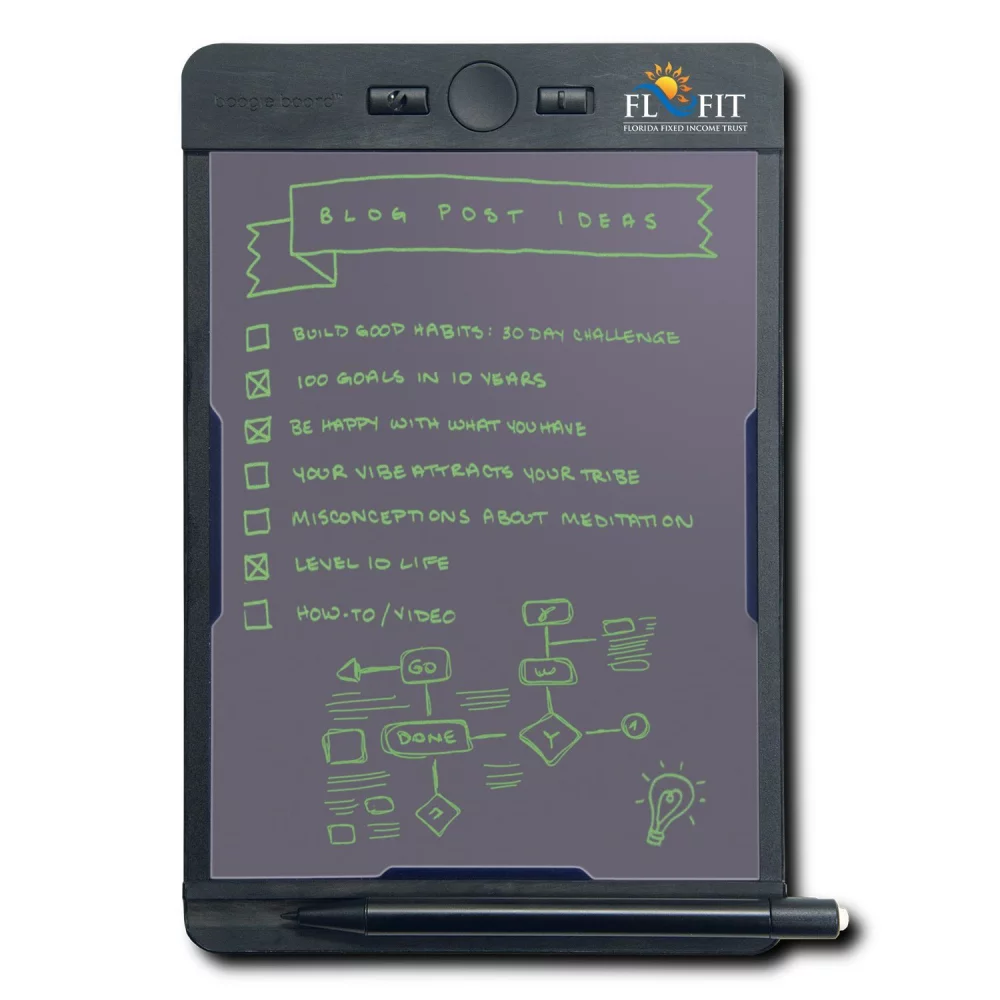 boogie board™
FL FIT
FLORIDA FIXED INCOME TRUST
BLOG POST IDEAS
BUILD GOOD HABITS: 30 DAY CHALLENGE
100 GOALS IN 10 YEARS
BE HAPPY WITH WHAT YOU HAVE
YOUR VIBE ATTRACTS YOUR TRIBE
MISCONCEPTIONS ABOUT MEDITATION
LEVEL 10 LIFE
HOW-TO/VIDEO
GO
W
DONE
Y